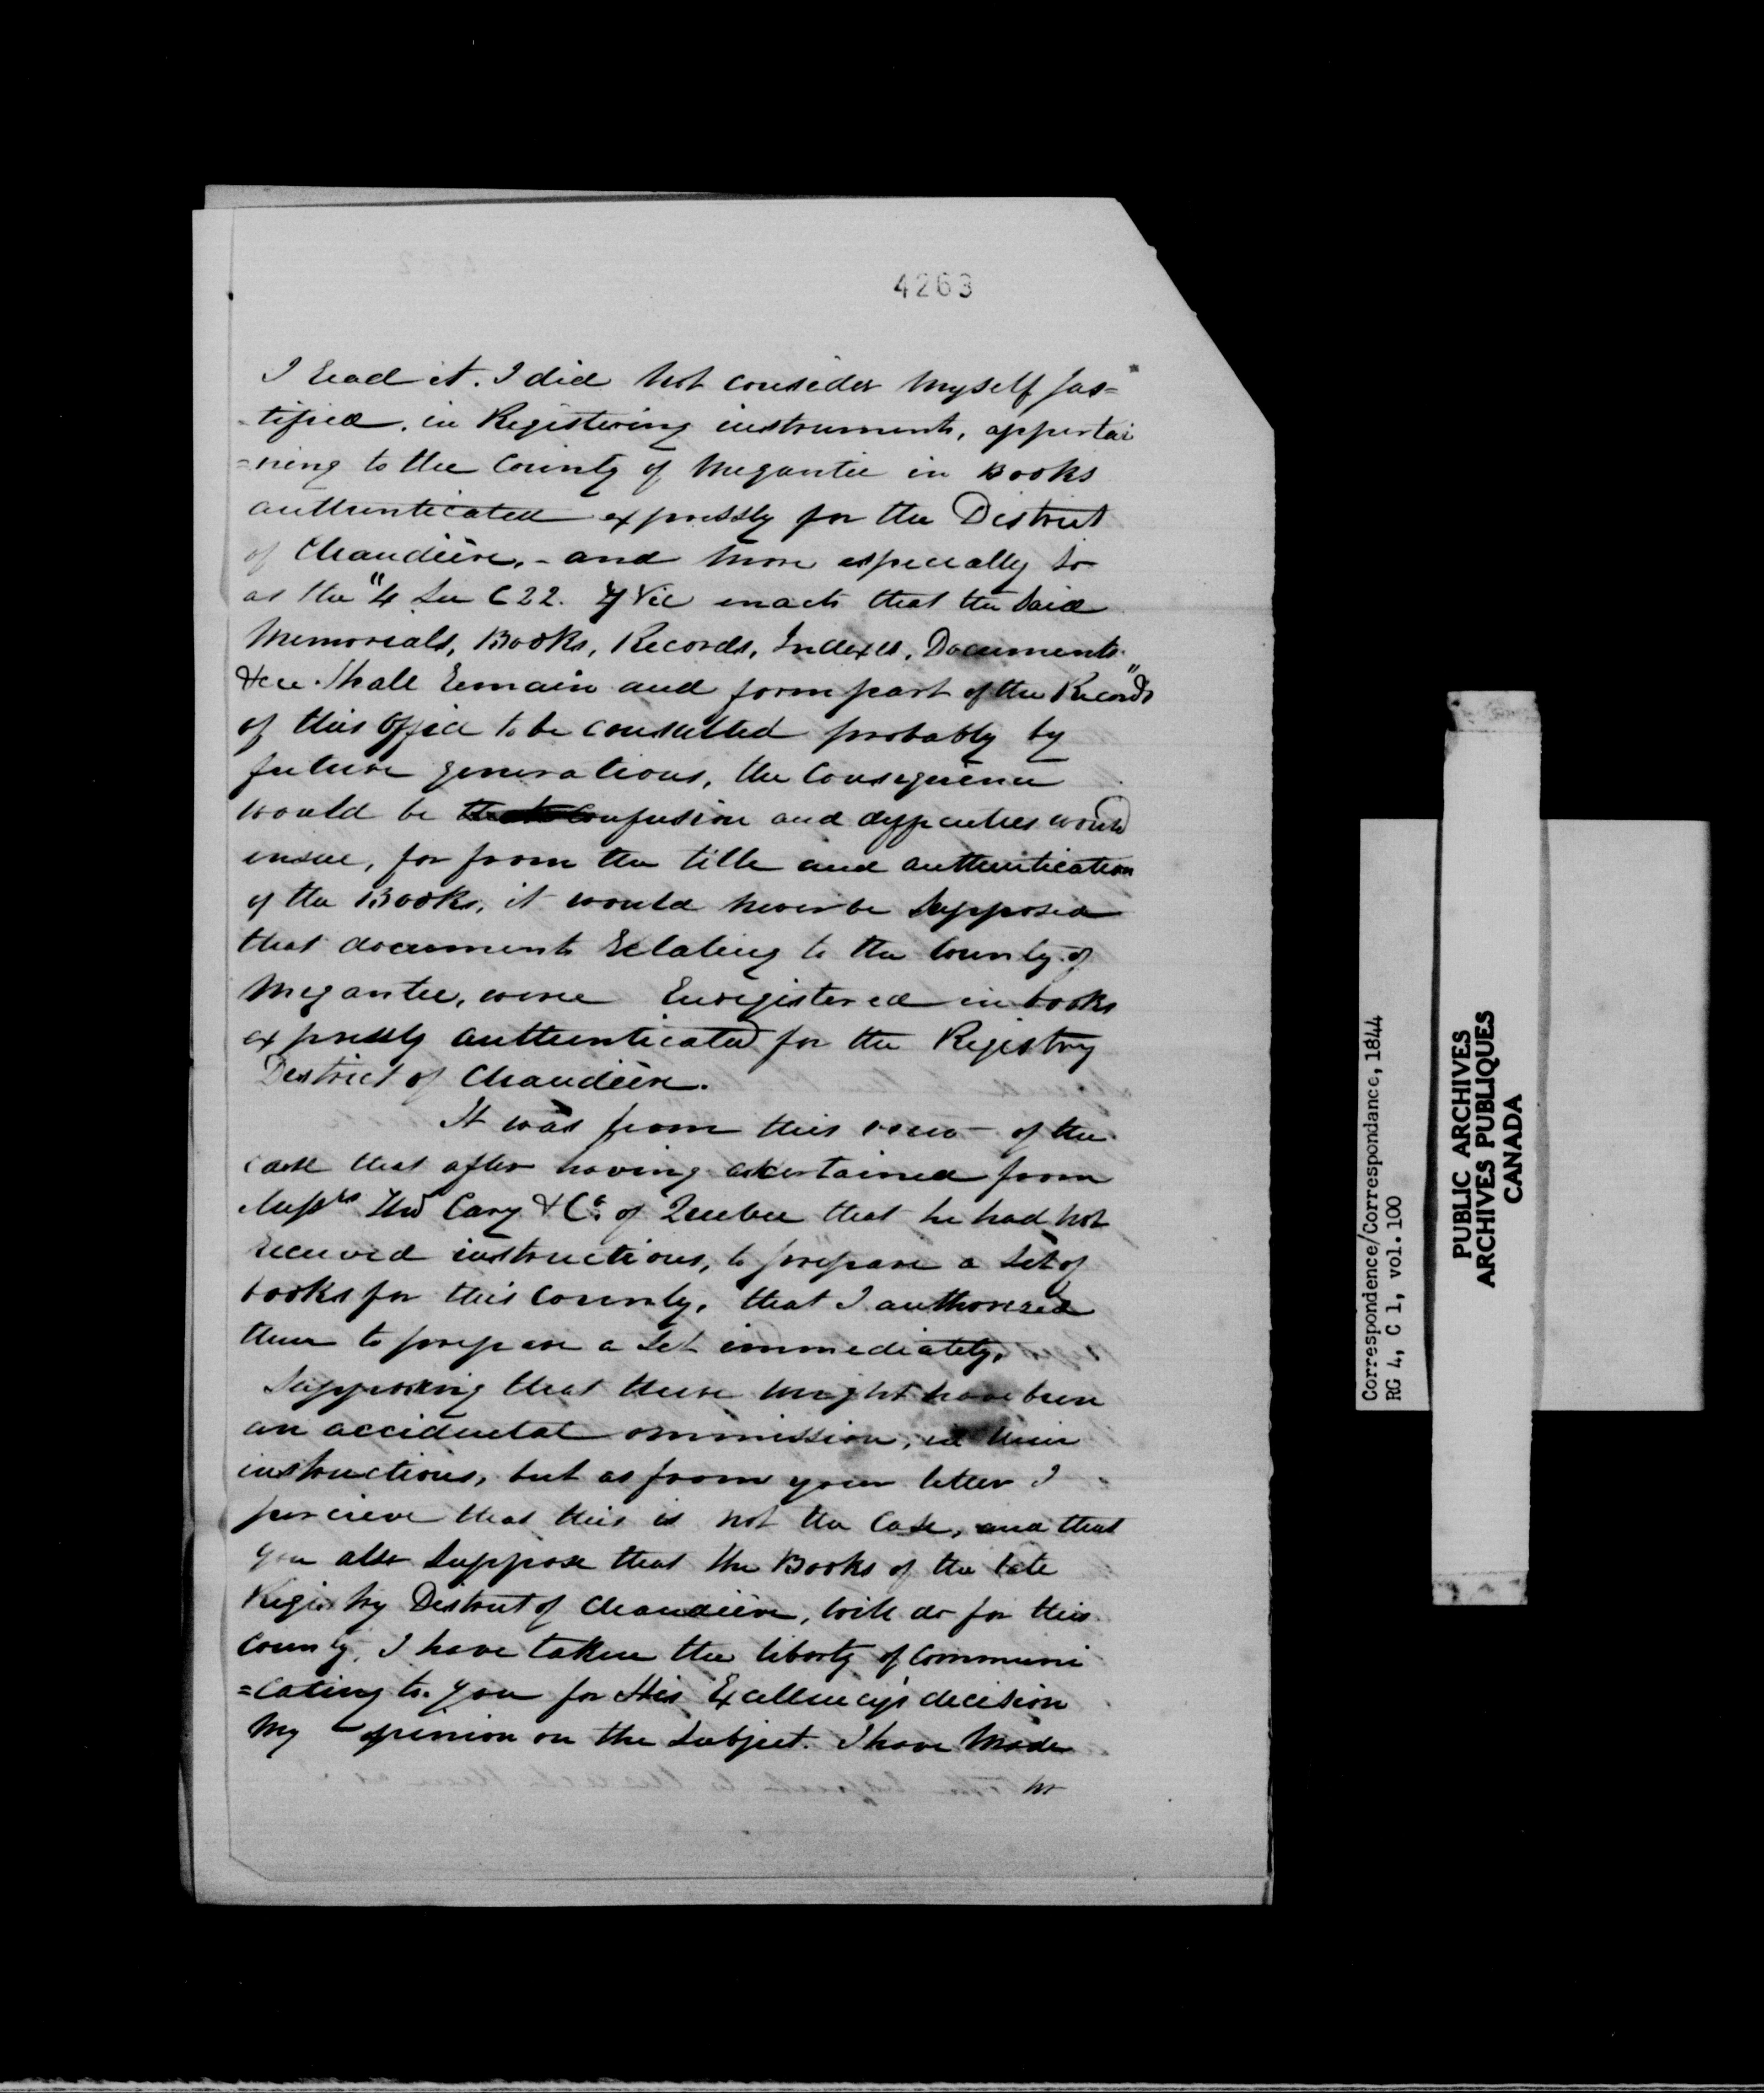 4263
I read it. I did not consider myself jus=
-tified, in Registering instruments, appertai
=ning to the County of Megantic in Books
authenticated expressly for the District
of Chaudière, - and more especially so
as the "4 Sec C 22. 7 Vic enacts that the said
Memorials, Books, Records, Indexes, Documents
&cc. shall remain and form part of the Records"
of this Office to be consulted probably by
future generations, the consequence
would be confusion and difficulties would
ensue, for from the title and authentication
of the Books, it would never be supposed
that documents relating to the County of
Megantic, were Enregistered in books
expressly authenticated for the Registry
District of Chaudière.
It was from this view of the
case that after having ascertained from
Messrs Thos Cary & Co. of Quebec that he had not
received instructions, to prepare a set of
books for this County, that I authorised
them to prepare a set immediately,
Supposing that there might have been
an accidental ommission, in their
instructions, but as from your letter I
percieve that this is not the case, and that
you also suppose that the Books of the late
Registry District of Chaudière, will do for this
County, I have taken the liberty of communi
=cating to you for His Excellency's decision
my opinion on the subject. I have made
no
Correspondence/Correspondance, 1844
RG 4, C 1, vol. 100
PUBLIC ARCHIVES
ARCHIVES PUBLIQUES
CANADA